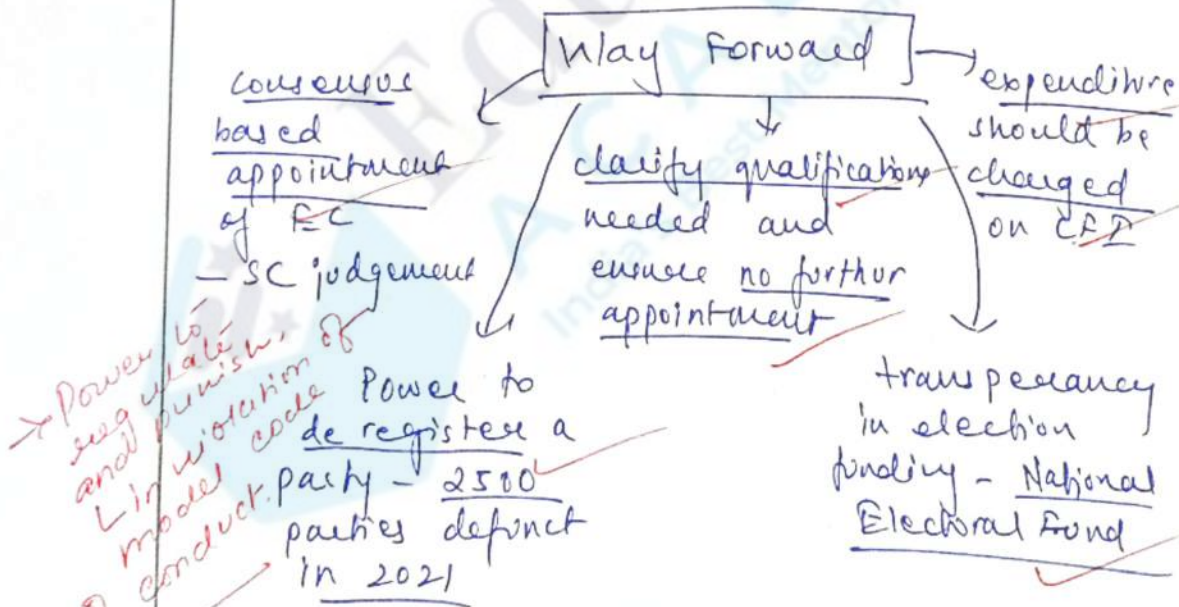 Way Forward
consensus
based
appointment
of EC
- SC judgement
clarify qualifications
needed and
ensure no furthur
appointment
expenditure
should be
charged
on CFI
Power to
de register a
party - 2500
parties defunct
in 2021
transperancy
in election
funding - National
Electoral Fund
→ Power to
regulate
and punish,
in violation of
model code
conduct.